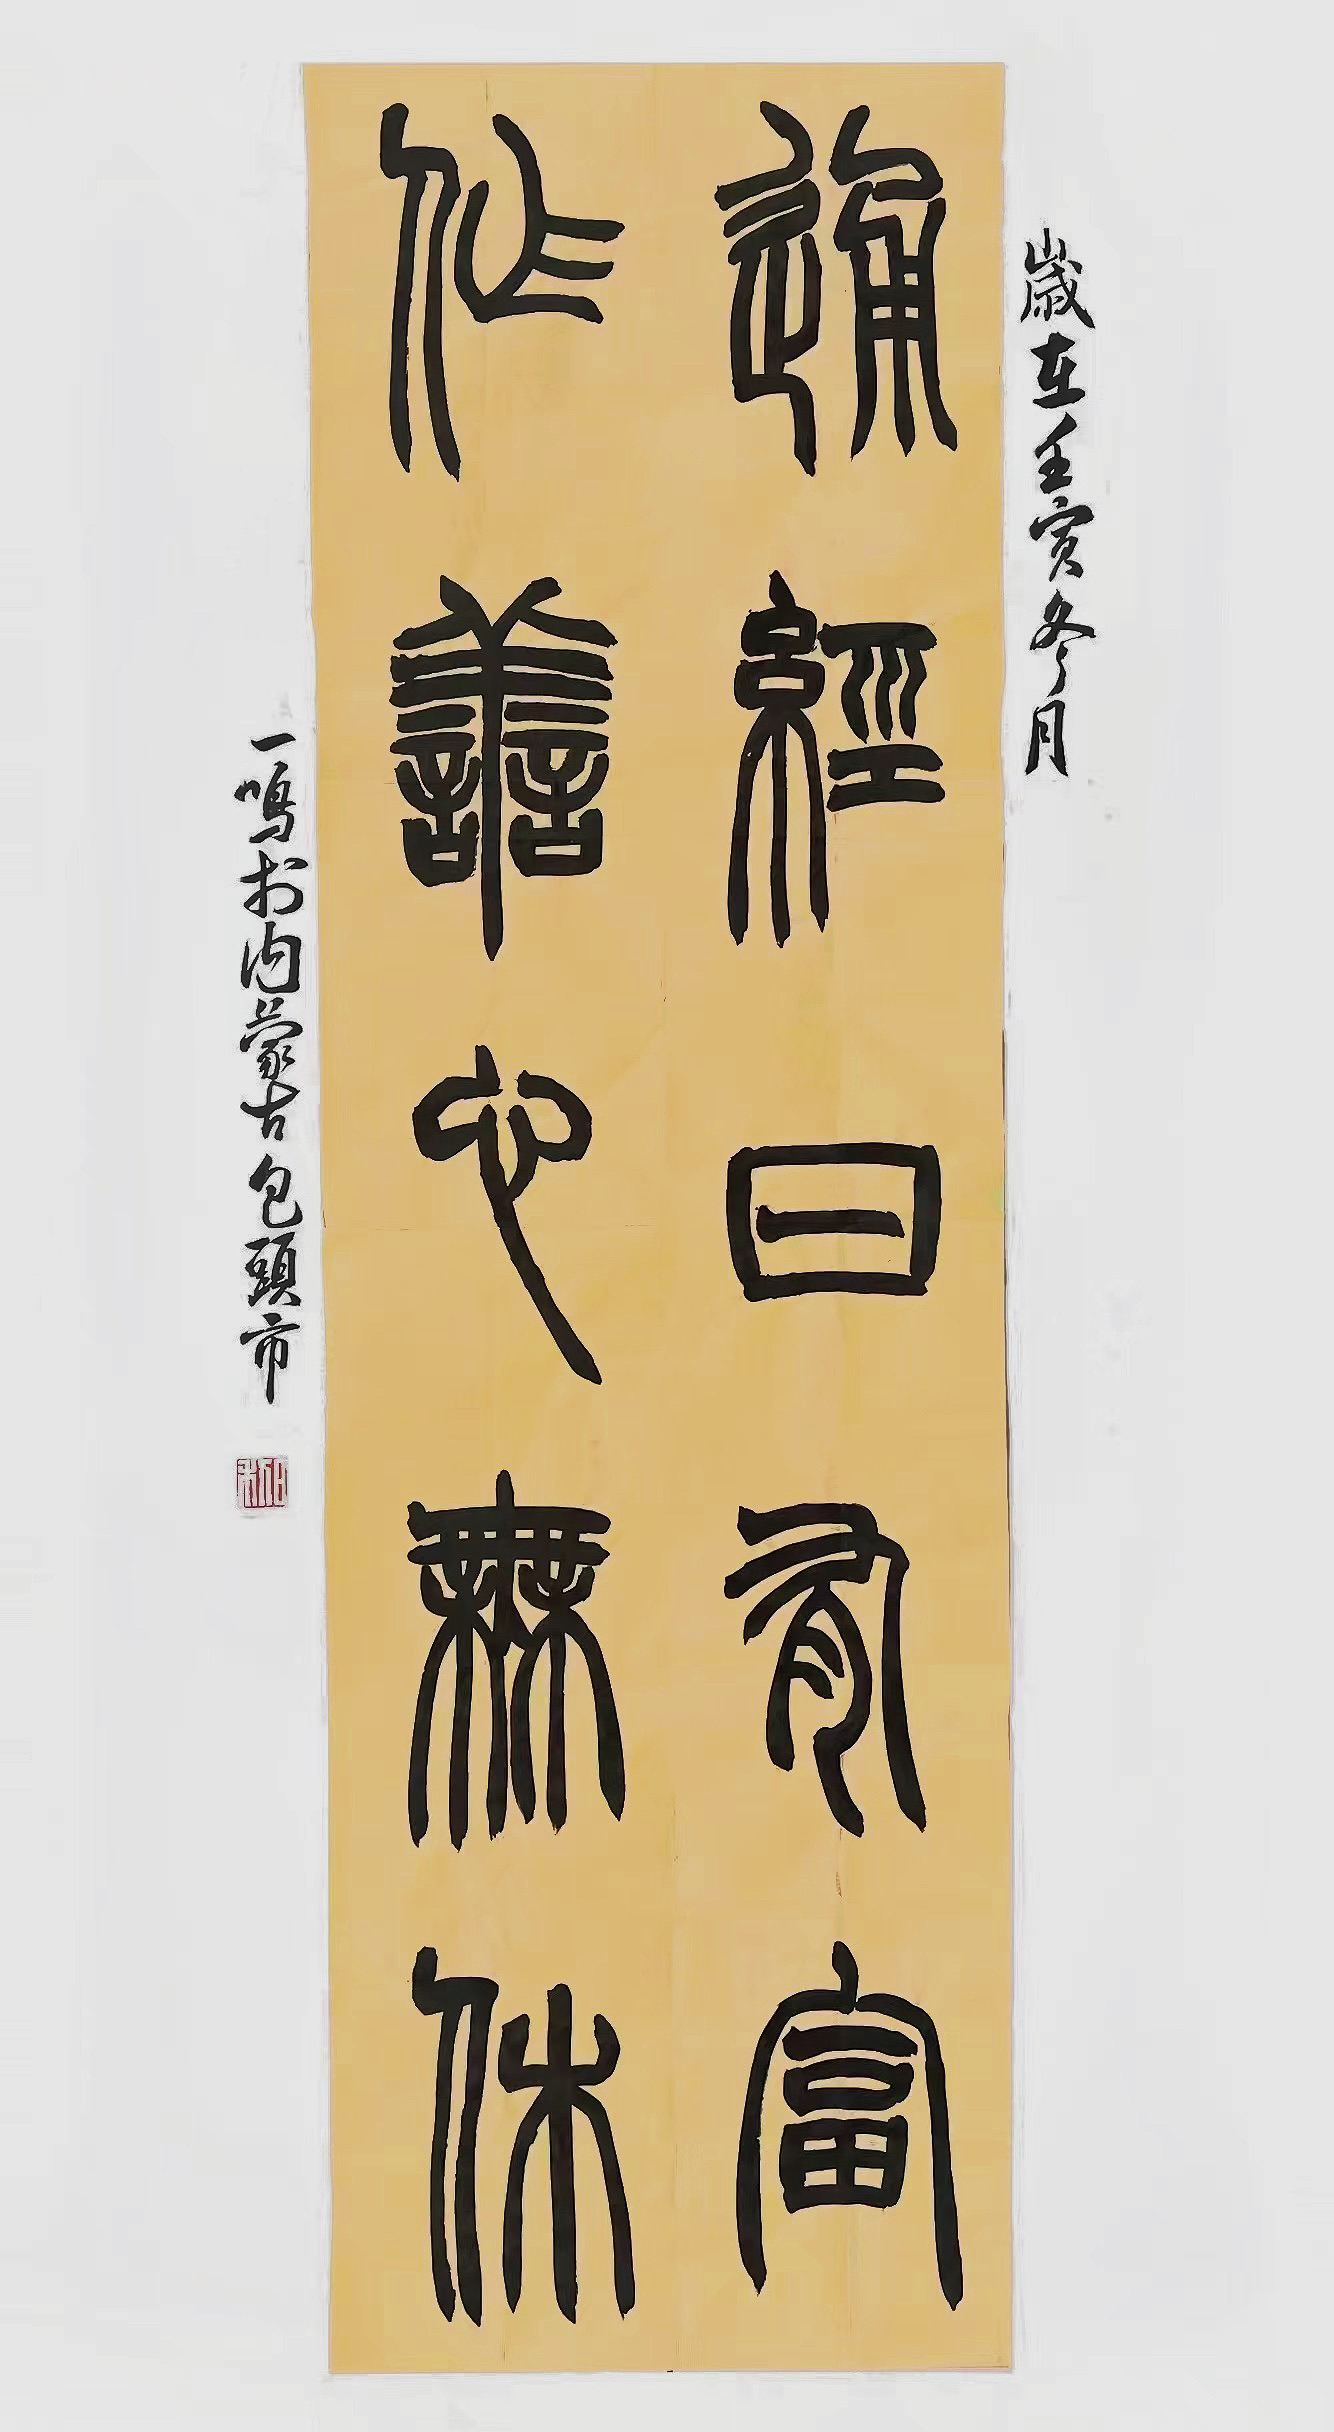 歲在壬寅冬月
通經日有富
作善心無休
一鳴於内蒙古包頭市